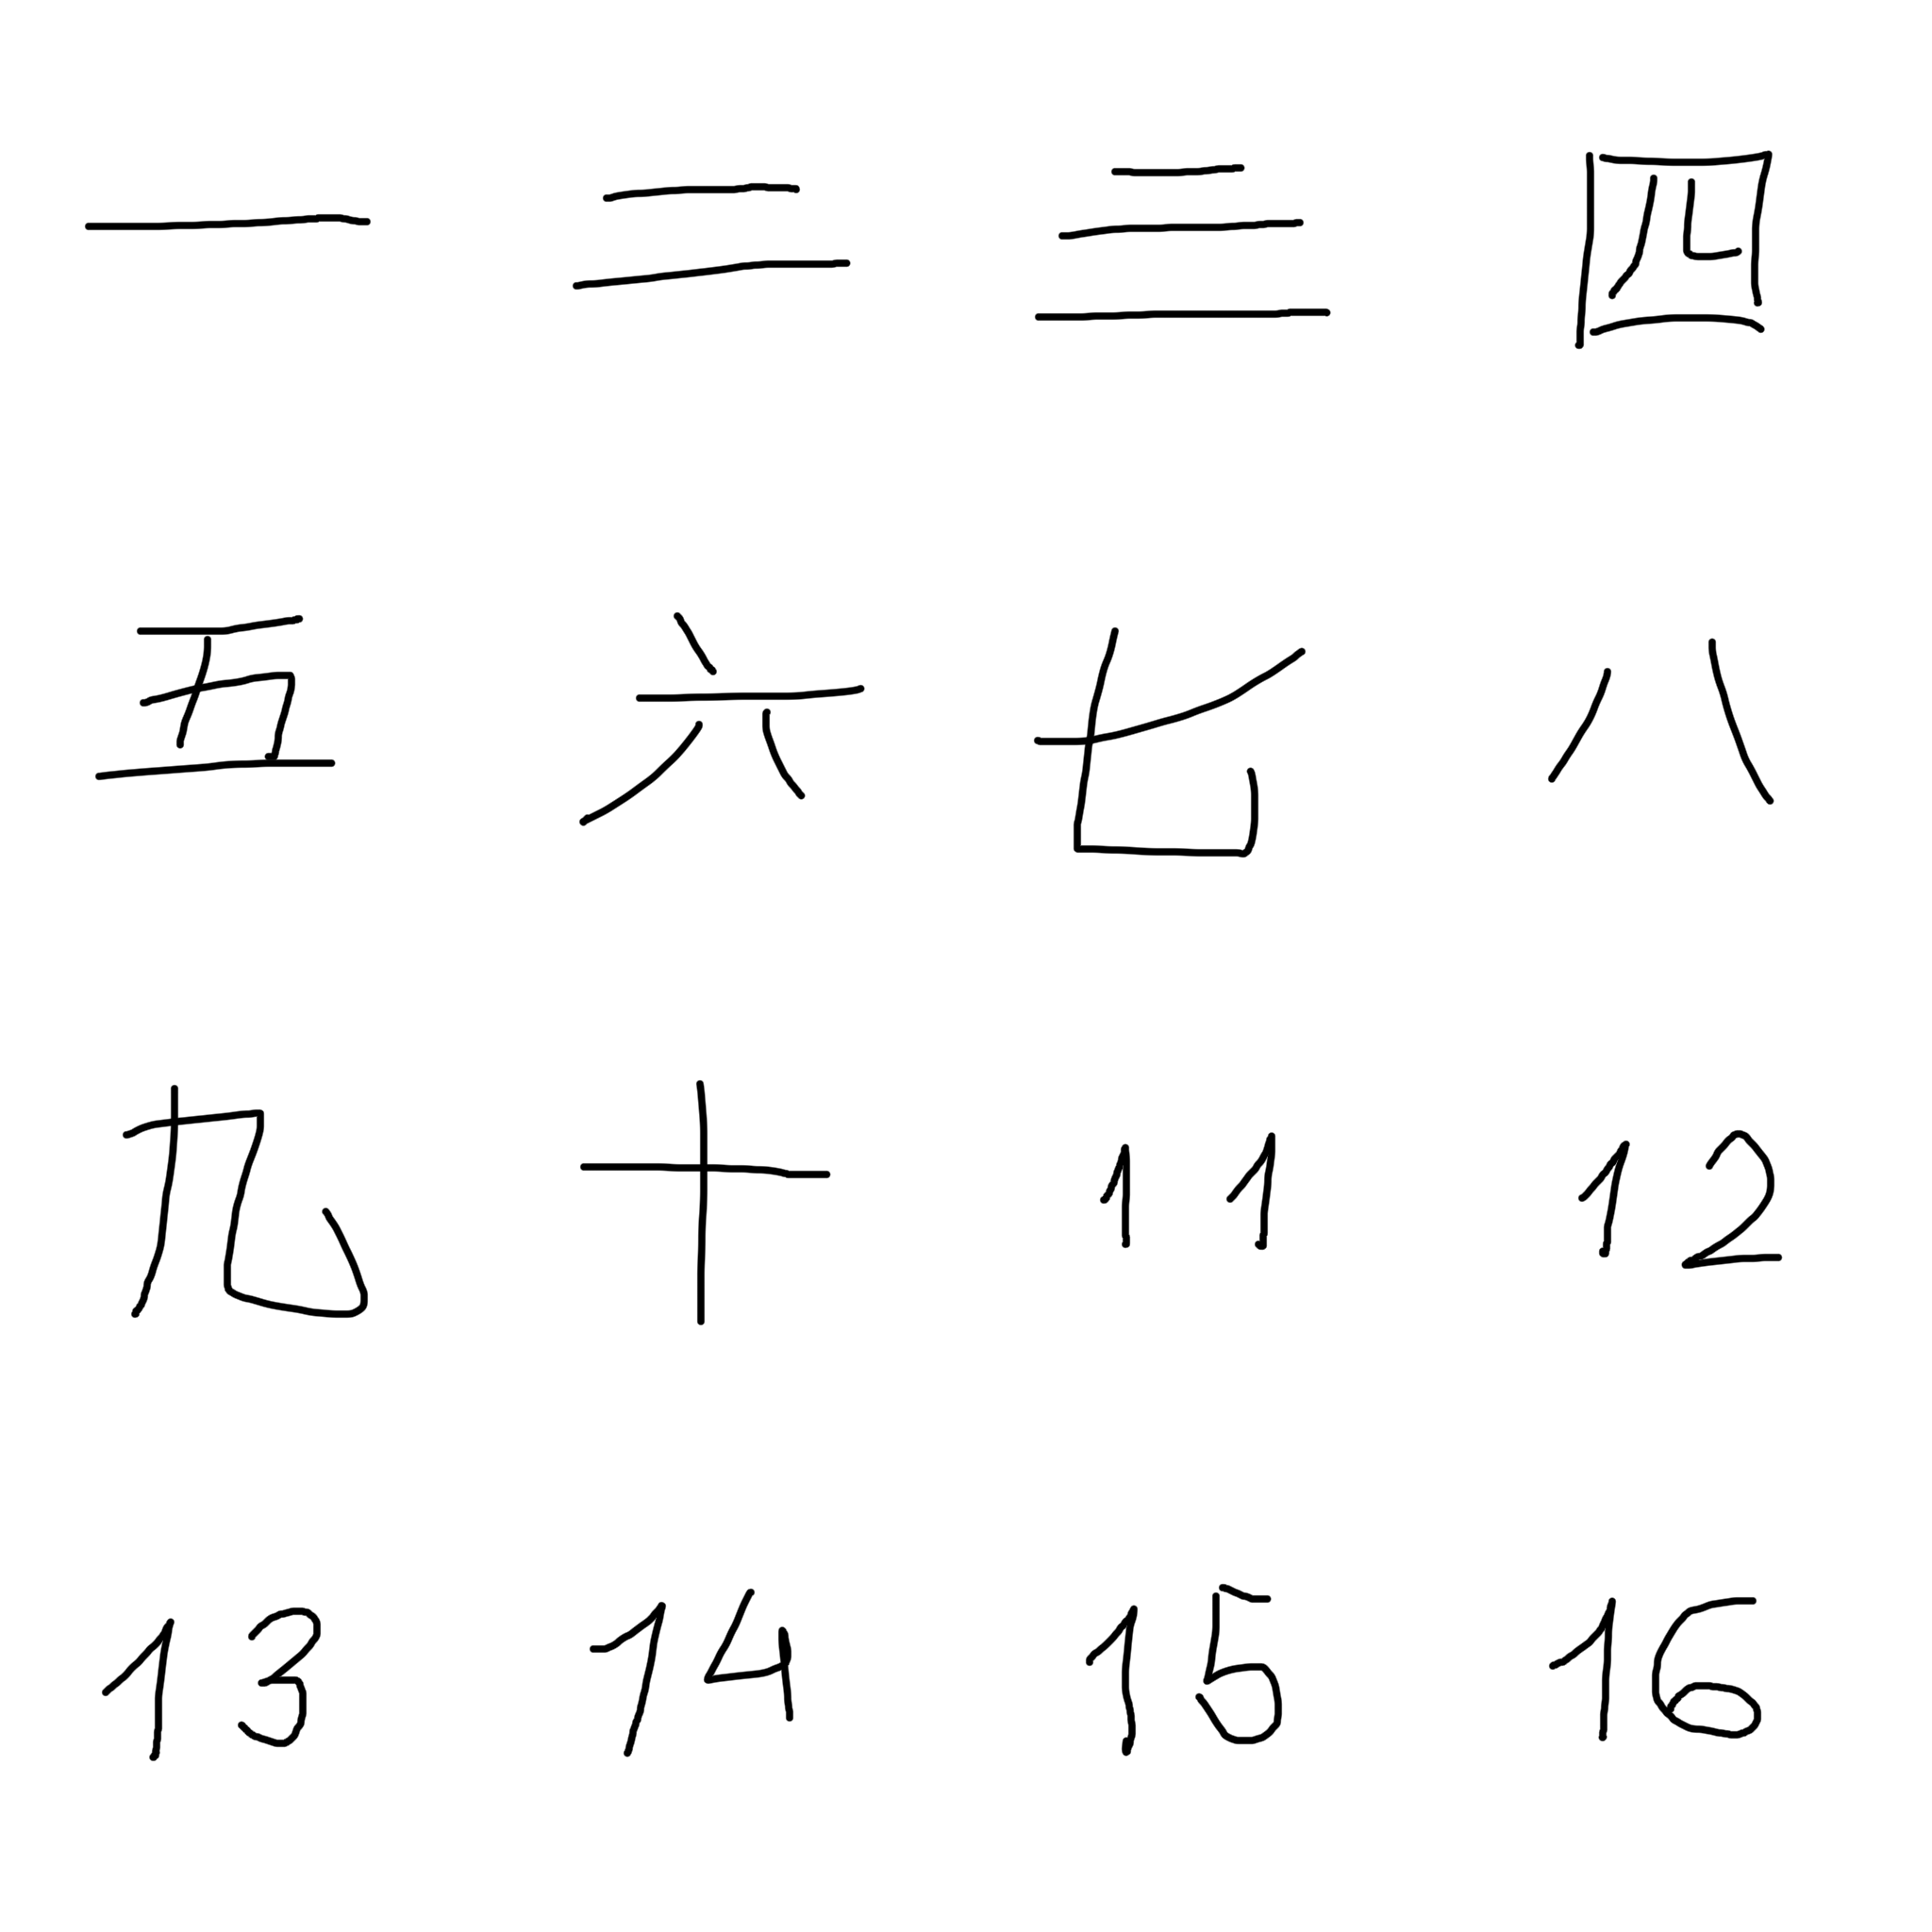 一 二 三 四
五 六 七 八
九 十 11 12
13 14 15 16